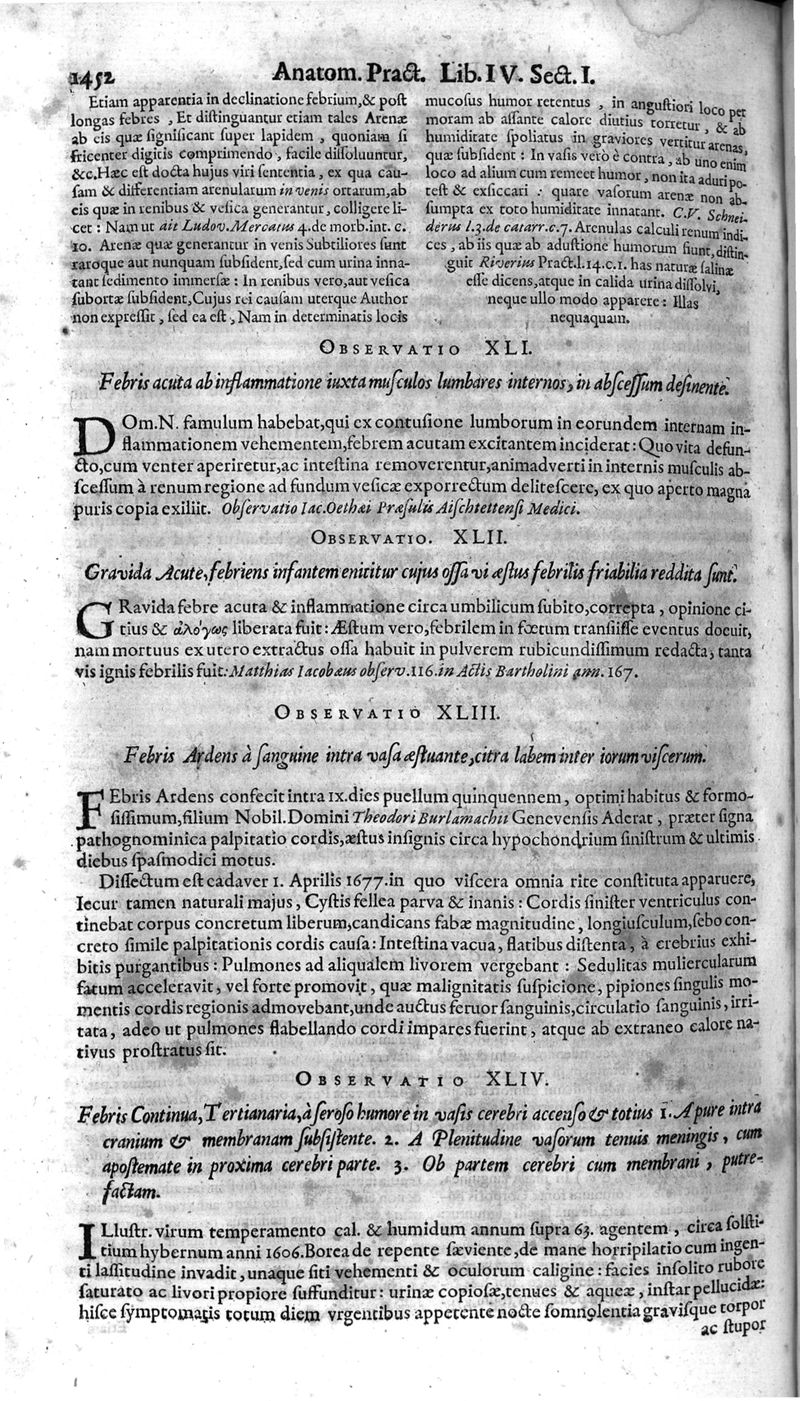 1452 Anatom. Pract. Lib. IV. Sect. I.
Etiam apparentia in declinatione febrium, & post
longas febres , Et distinguantur etiam tales Arenæ
ab eis quæ significant super lapidem , quoniam si
fricenter digitis comprimendo , facile dissoluuntur,
&c. Hæc est docta hujus viri sententia , ex qua cau-
sam & differentiam arenularum in venis ortarum, ab
eis quæ in renibus & vesica generantur, colligere li-
cet : Nam ut ait Ludov. Mercatus 4. de morb. int. c.
10. Arenæ quæ generantur in venis Subtiliores sunt
raroque aut nunquam subsident, sed cum urina inna-
tant sedimento immersæ : In renibus vero, aut vesica
subortæ subsident, Cujus rei causam uterque Author
non expressit , sed ea est , Nam in determinatis locis
mucosus humor retentus , in angustiori loco per
moram ab assante calore diutius torretur , & ab
humiditate spoliatus in graviores vertitur arenas,
quæ subsident : In vasis verò è contra , ab uno enim
loco ad alium cum remeet humor , non ita aduri po-
test & exsiccari : quare vasorum arenæ non ab-
sumpta ex toto humiditate innatant. C. V. Schnei-
derus l. 3. de catarr. c. 7. Arenulas calculi renum indi-
ces , ab iis quæ ab adustione humorum fiunt, distin-
guit Riverius Pract. l. 14. c. 1. has naturæ salinæ
esse dicens, atque in calida urina dissolvi,
neque ullo modo apparere : Illas
nequaquam.
OBSERVATIO XLI.
Febris acuta ab inflammatione iuxta musculos lumbares internos, in abscessum desinente.
DOm. N. famulum habebat, qui ex contusione lumborum in eorundem internam in-
flammationem vehementem, febrem acutam excitantem inciderat : Quo vita defun-
cto, cum venter aperiretur, ac intestina removerentur, animadverti in internis musculis ab-
scessum à renum regione ad fundum vesicæ exporrectum delitescere, ex quo aperto magna
puris copia exiliit. Observatio Iac. Oethæi Præsulis Aischtettensi Medici.
OBSERVATIO. XLII.
Gravida Acute, febriens infantem enititur cujus ossa vi æstus febrilis friabilia reddita sunt.
GRavida febre acuta & inflammatione circa umbilicum subito, correpta , opinione ci-
tius & ἀλόγως liberata fuit : Æstum vero, febrilem in fœtum transiisse eventus docuit,
nam mortuus ex utero extractus ossa habuit in pulverem rubicundissimum redacta, tanta
vis ignis febrilis fuit: Matthias Iacobæus observ. 116. in Actis Bartholini ann. 167.
OBSERVATIO XLIII.
Febris Ardens à sanguine intra vasa æstuante, citra labem inter iorum viscerum.
FEbris Ardens confecit intra IX. dies puellum quinquennem , optimi habitus & formo-
sissimum, filium Nobil. Domini Theodori Burlamachii Genevensis Aderat , præter signa
pathognominica palpitatio cordis, æstus insignis circa hypochondrium sinistrum & ultimis
diebus spasmodici motus.
Dissectum est cadaver 1. Aprilis 1677. in quo viscera omnia rite constituta apparuere,
Iecur tamen naturali majus , Cystis fellea parva & inanis : Cordis sinister ventriculus con-
tinebat corpus concretum liberum, candicans fabæ magnitudine , longiusculum, sebo con-
creto simile palpitationis cordis causa : Intestina vacua, flatibus distenta , à crebrius exhi-
bitis purgantibus : Pulmones ad aliqualem livorem vergebant : Sedulitas muliercularum
fatum acceleravit , vel forte promovit , quæ malignitatis suspicione, pipiones singulis mo-
mentis cordis regionis admovebant, unde auctus feruor sanguinis, circulatio sanguinis, irri-
tata , adeo ut pulmones flabellando cordi impares fuerint , atque ab extraneo calore na-
tivus prostratus sit.
OBSERVATIO XLIV.
Febris Continua, Tertianaria, à seroso humore in vasis cerebri accenso & totius 1. A pure intra
cranium & membranam subsistente. 2. A Plenitudine vasorum tenuis meningis , cum
apostemate in proxima cerebri parte. 3. Ob partem cerebri cum membrani , putre-
factam.
ILlustr. virum temperamento cal. & humidum annum supra 63. agentem , circa solsti-
tium hybernum anni 1606. Borea de repente sæviente, de mane horripilatio cum ingen-
ti lassitudine invadit, unaque siti vehementi & oculorum caligine : facies insolito rubore
saturato ac livori propiore suffunditur : urinæ copiosæ, tenues & aqueæ , instar pellucidæ:
hisce symptomatis totum diem vrgentibus appetente nocte somnolentia gravisque torpor
ac stupor